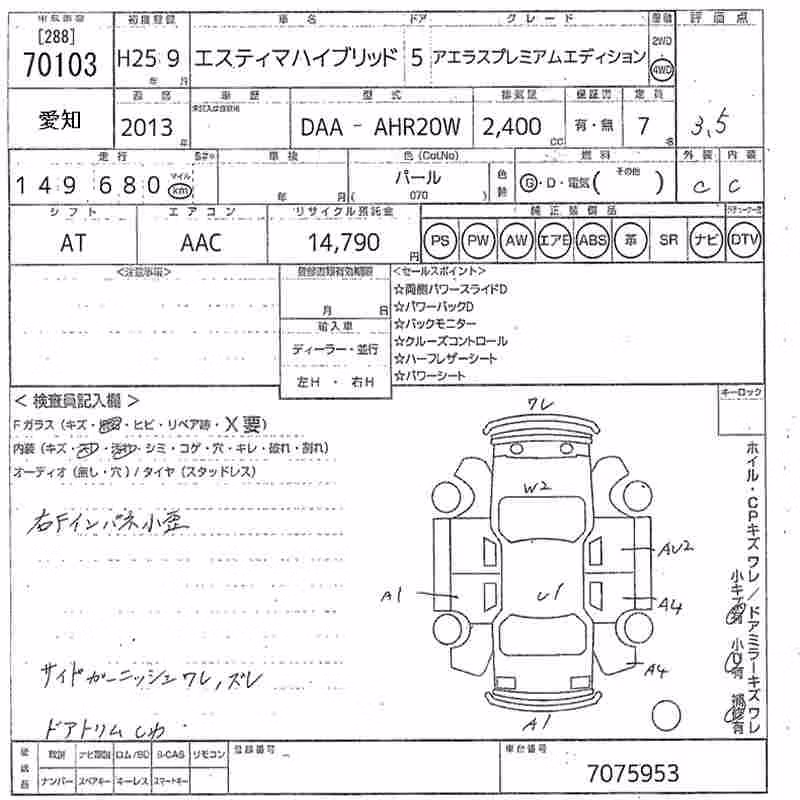 初度登録 車名 ドア グレード 評価点
[288]
70103 H25 9 エスティマハイブリッド 5 アエラスプレミアムエディション 2WD 4WD
年 月
愛知 車歴 型式 排気量 保証書 定員
2013 DAA - AHR20W 2,400 有・無 7 3,5
年 CC 名
走行 車検 色(Col.No) 燃料 外装 内装
149 680 マイル km 年 月 パール 色替 G・D・電気( その他 ) C C
( 070 )
シフト エアコン リサイクル預託金 純正装備品
AT AAC 14,790 円 PS PW AW エアB ABS 革 SR ナビ DTV
<注意事項> <セールスポイント>
☆両側パワースライドD
月 日 ☆パワーバックD
輸入車 ☆バックモニター
ディーラー・並行 ☆クルーズコントロール
☆ハーフレザーシート
左H ・ 右H ☆パワーシート
<検査員記入欄> キーロック
Fガラス(キズ・ ・ヒビ・リペア跡・X要)
内装(キズ・ ・ ・シミ・コゲ・穴・キレ・破れ・割れ)
オーディオ(無し・穴)/タイヤ(スタッドレス)
右Fインパネ小歪
サイドガーニッシュワレ,ズレ
ドアトリムしわ
ワレ
W2
AU2
A1
U1
A4
A4
A1
ホイル・CPキズワレ/ドアミラーキズワレ
小キズ有 小U有 補修有
後送品 取説 ナビ取説 ロム/SD B-CAS リモコン 登録番号 車台番号
ナンバー スペアキー キーレス スマートキー 7075953